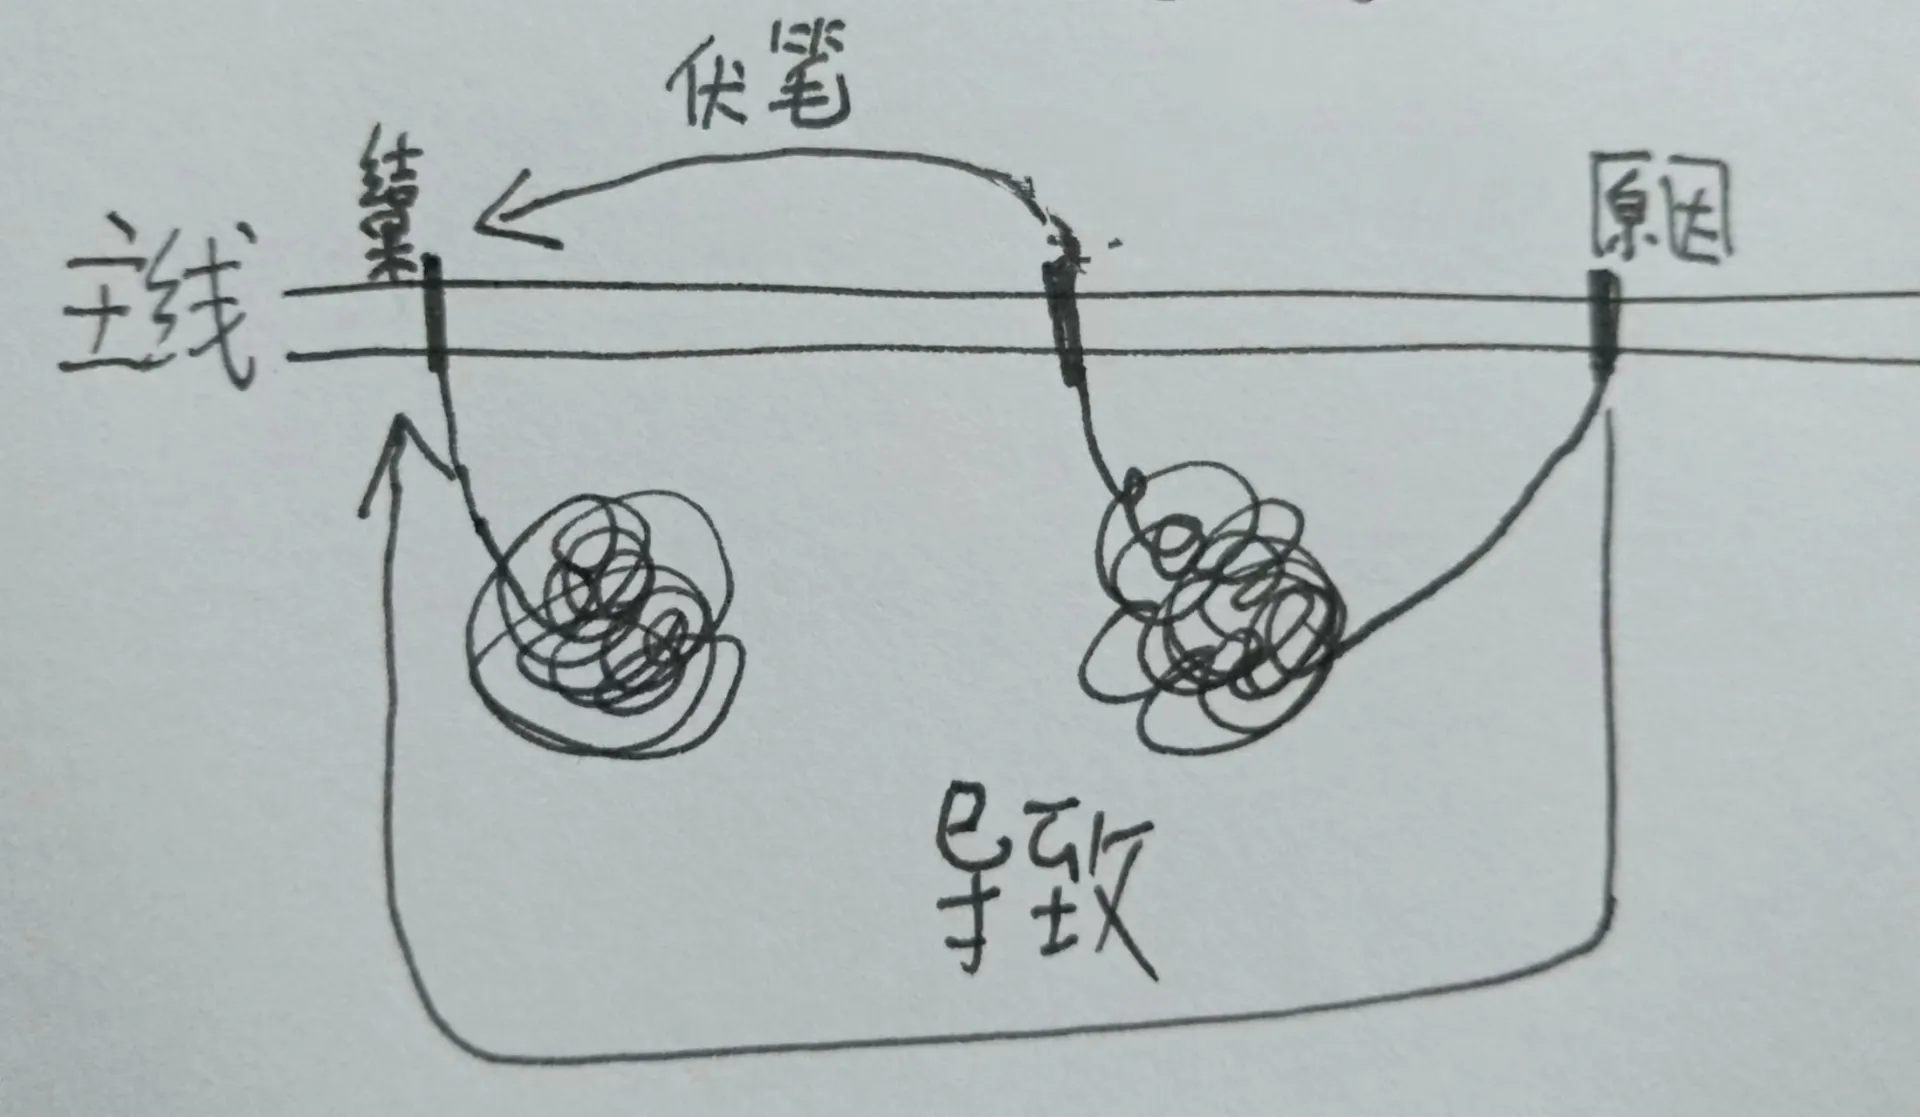 伏笔
结果
原因
主线
导致